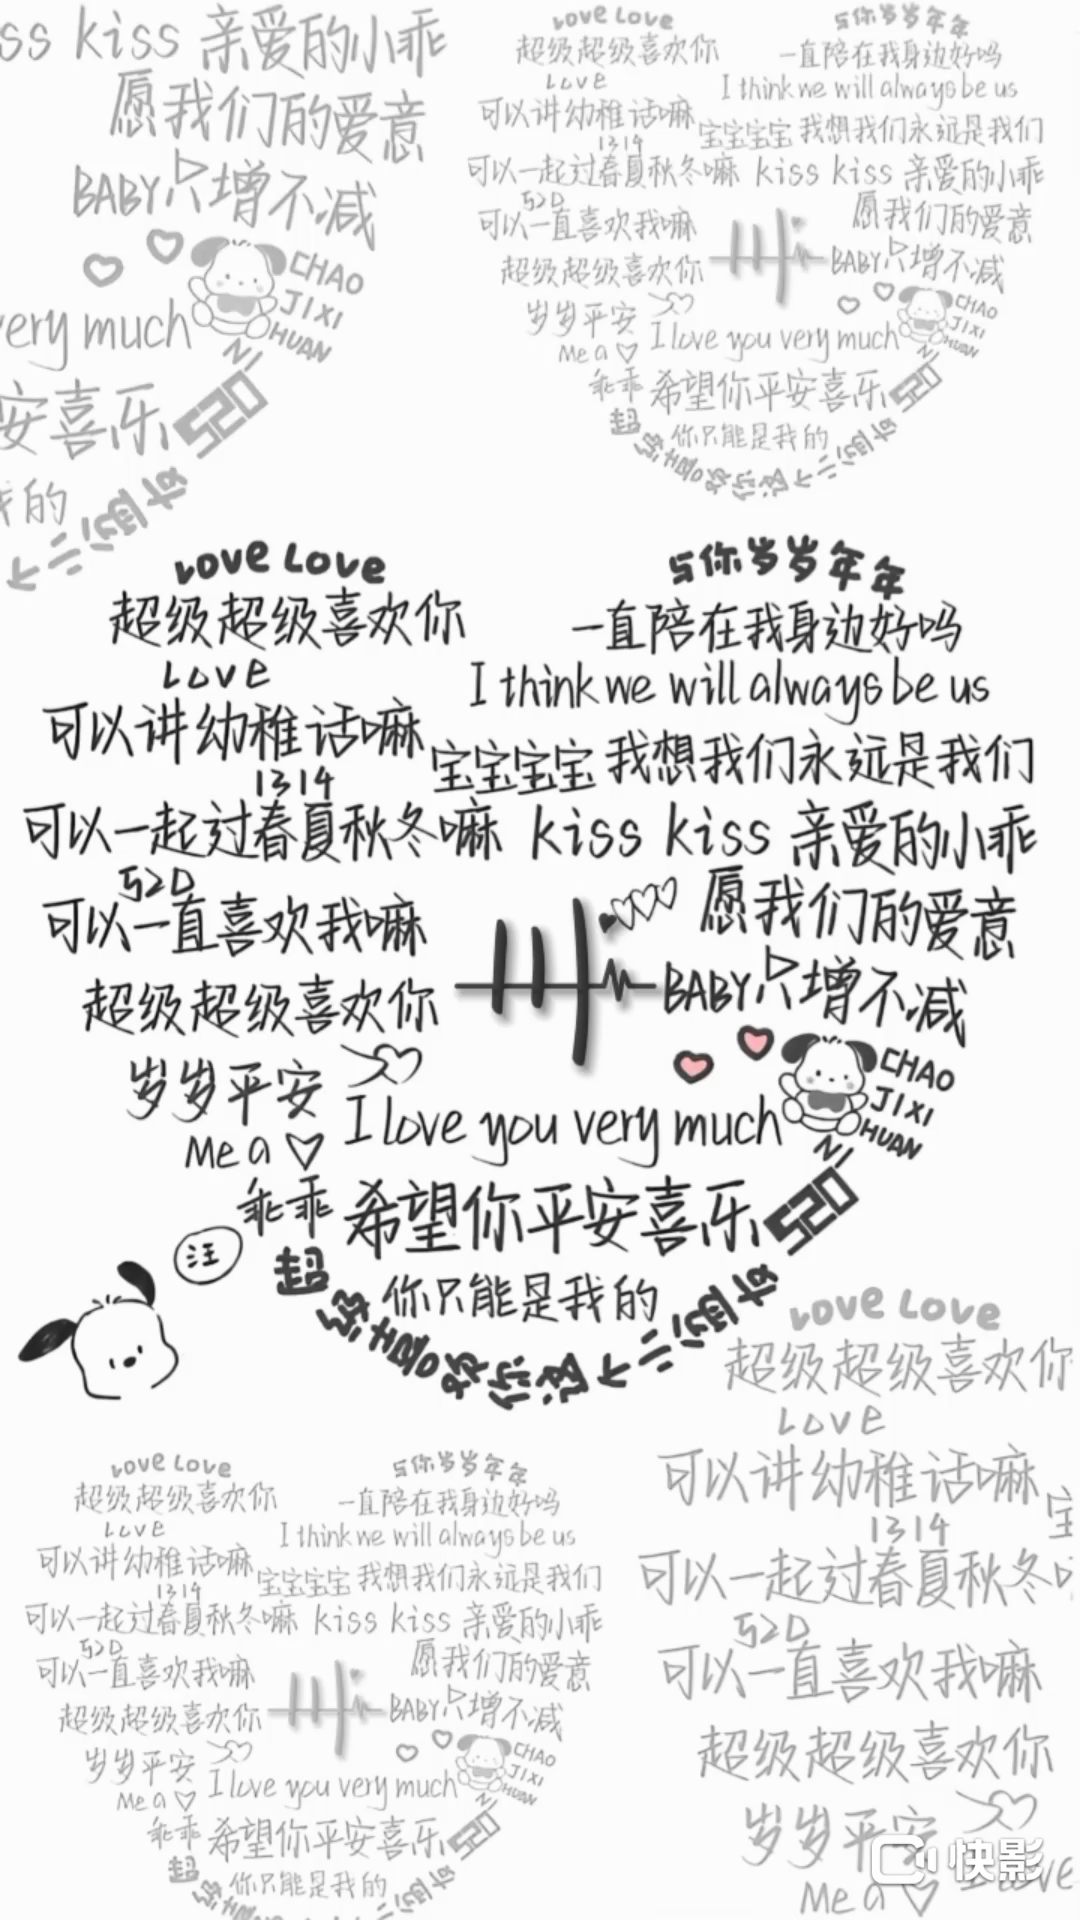 ss kiss 亲爱的小乖
愿我们的爱意
BABY只增不减
CHAO
JIXI
HUAN
NI
very much
安喜乐 520
我的
Love Love
超级超级喜欢你
Love
可以讲幼稚话嘛
1314
可以一起过春夏秋冬嘛
520
可以一直喜欢我嘛
超级超级喜欢你
岁岁平安
Me a
乖乖
与你岁岁年年
一直陪在我身边好吗
I think we will always be us
宝宝宝宝 我想我们永远是我们
kiss kiss 亲爱的小乖
愿我们的爱意
BABY只增不减
CHAO
JIXI
HUAN
NI
I love you very much
希望你平安喜乐 520
你只能是我的
Love Love
超级超级喜欢你
Love
可以讲幼稚话嘛
1314
可以一起过春夏秋冬嘛
520
可以一直喜欢我嘛
超级超级喜欢你
岁岁平安
Me a
乖乖
与你岁岁年年
一直陪在我身边好吗
I think we will always be us
宝宝宝宝 我想我们永远是我们
kiss kiss 亲爱的小乖
愿我们的爱意
BABY只增不减
CHAO
JIXI
HUAN
NI
I love you very much
希望你平安喜乐 520
你只能是我的
超级喜欢你这个
汪
Love Love
超级超级喜欢你
Love
可以讲幼稚话嘛
1314
可以一起过春夏秋冬嘛
520
可以一直喜欢我嘛
超级超级喜欢你
岁岁平安
Me a
乖乖
与你岁岁年年
一直陪在我身边好吗
I think we will always be us
宝宝宝宝 我想我们永远是我们
kiss kiss 亲爱的小乖
愿我们的爱意
BABY只增不减
CHAO
JIXI
HUAN
NI
I love you very much
希望你平安喜乐 520
你只能是我的
Love Love
超级超级喜欢你
Love
可以讲幼稚话嘛
宝
1314
可以一起过春夏秋冬
520
可以一直喜欢我嘛
超级超级喜欢你
岁岁平安
I love
Me a
快影